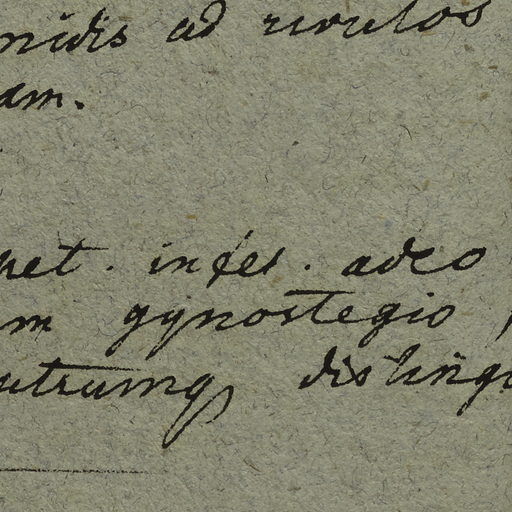 midis ad rivulos
am.
pet. infer. adeo
m gynostegio
utrumq distingu